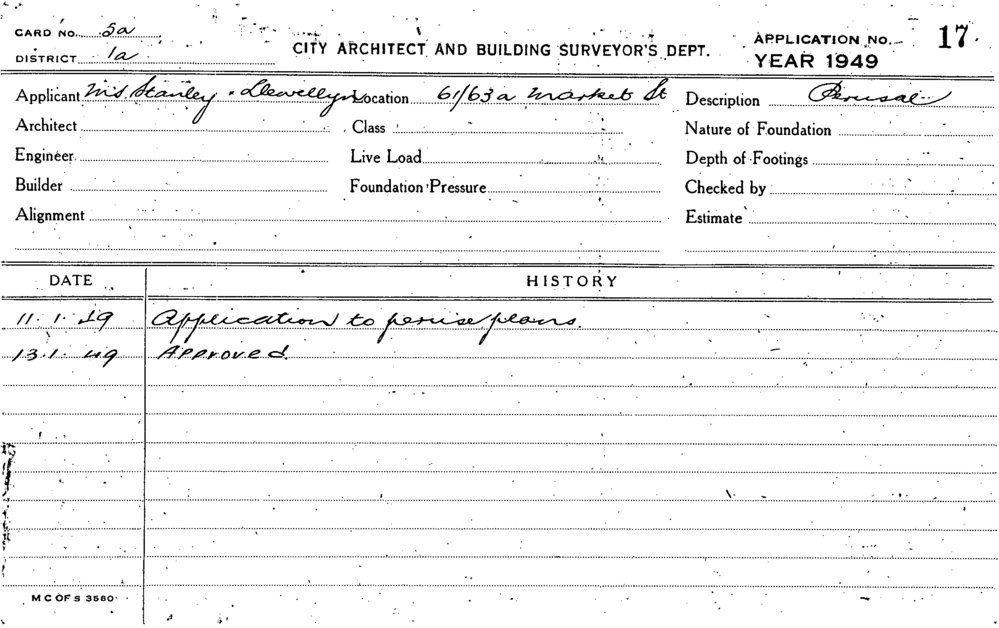 CARD NO. 5a
DISTRICT 1a
CITY ARCHITECT AND BUILDING SURVEYOR'S DEPT.
APPLICATION NO. 17.
YEAR 1949
Applicant Stanley & Llewellyn Location 61/63a Market St Description Perusal
Architect Class Nature of Foundation
Engineer Live Load Depth of Footings
Builder Foundation Pressure Checked by
Alignment Estimate
DATE HISTORY
11.1.49 Application to peruse plans.
13.1.49 Approved.
M C OF S 3580